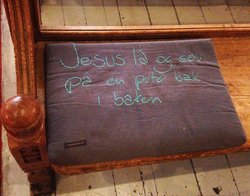 Jesus lå og sov
på en pute bak
i båten